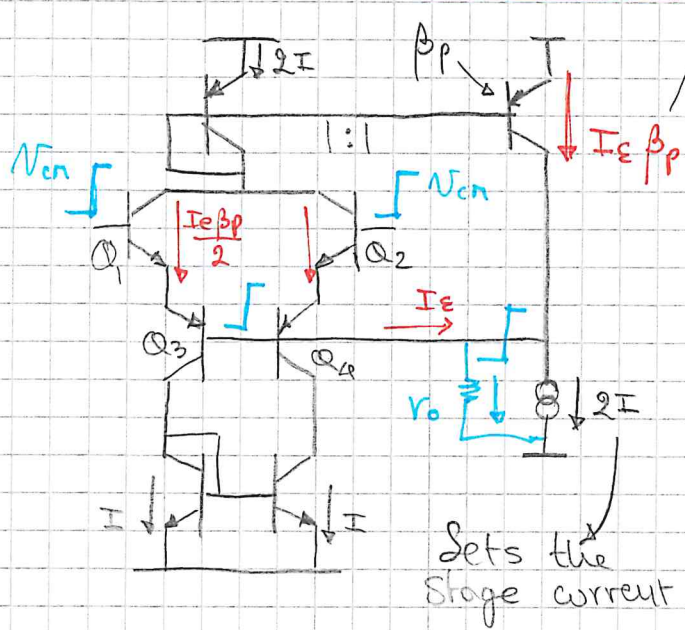 2I
βp
1:1
Iε βp
Vcm
Vcm
Ieβp
2
Q1
Q2
Iε
Q3
Q4
ro
2I
I
I
Sets the
Stage current